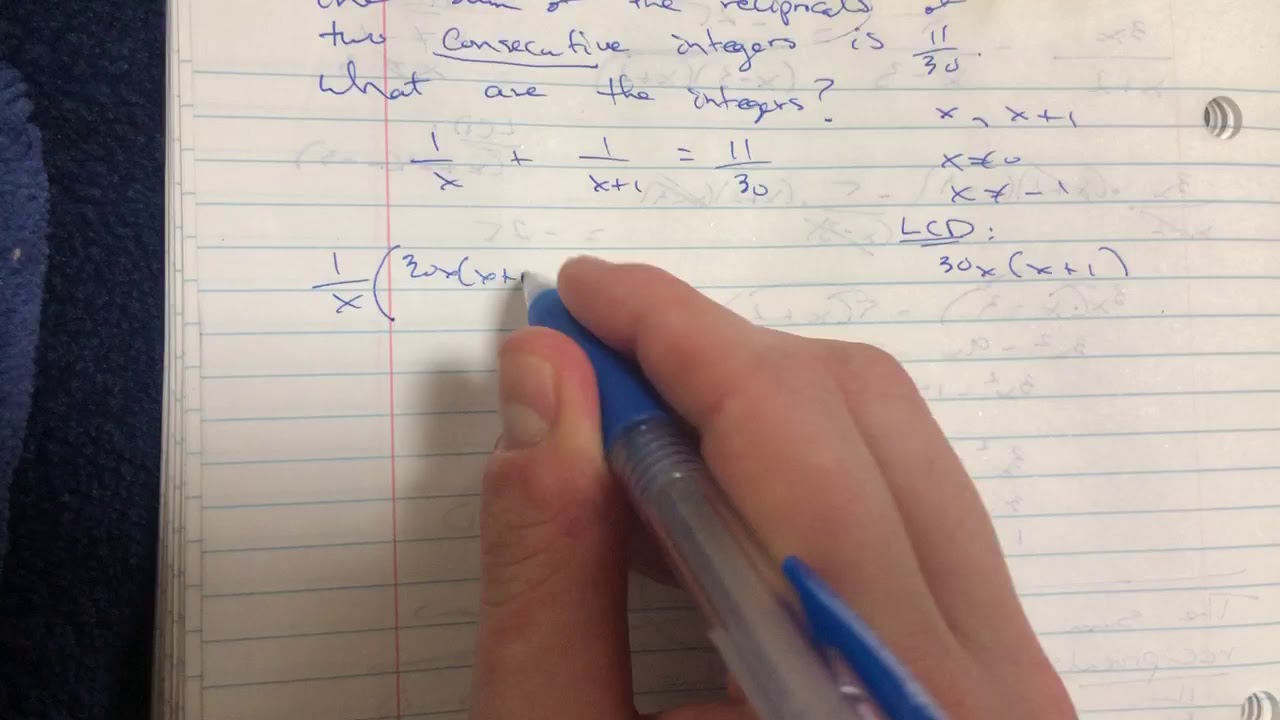 the sum of the recipricals of
two consecutive integers is 11/30.
What are the integers?
x, x+1
1/x + 1/x+1 = 11/30
x≠0
x≠-1
LCD:
30x(x+1)
1/x (30x(x+1